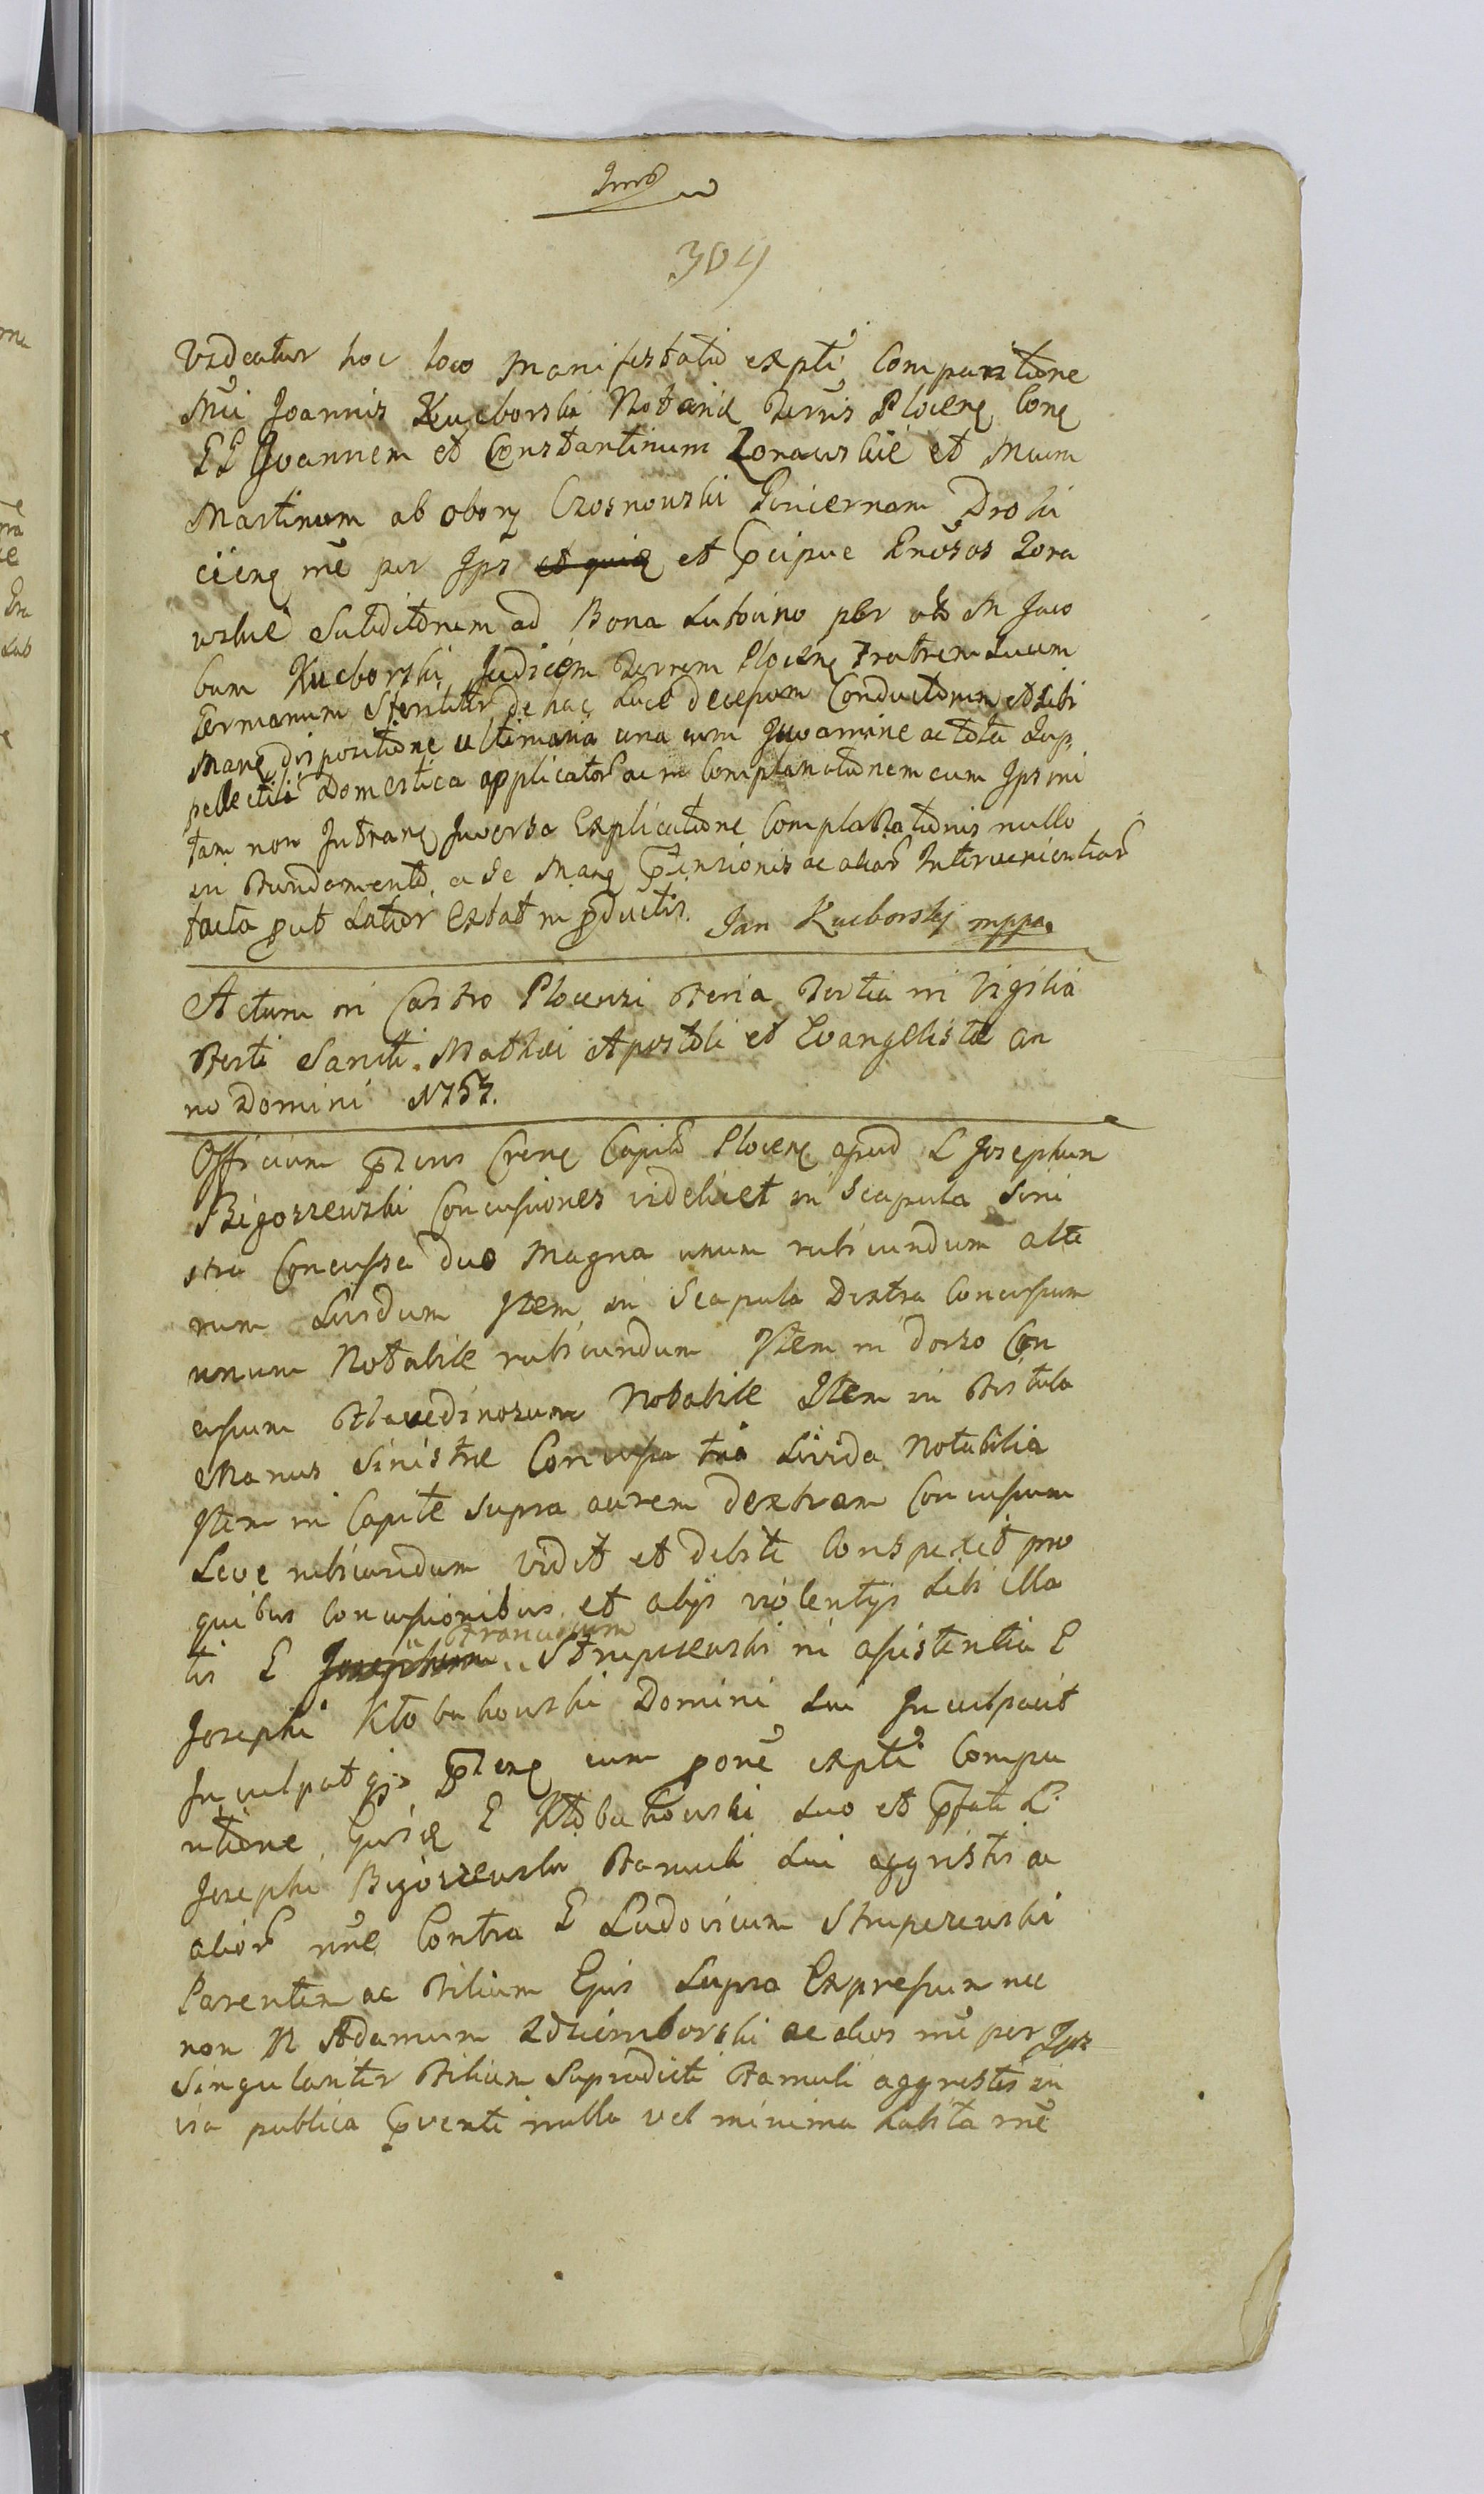 304
Videatur hoc loco Manifestatio expti Comparitione
Mci Joannis Kucborski Notarii Terris Plocens Cone
GG Joannem et Constantinum Zorawskie et Mcum
Martinum ab obory Czosnowski Pincernam Drohi
ciens me per Ips et quiq et pcipue Gnosos Zora
wskie Subditorum ad Bona Lutocino per olo M Jaco
bum Kucborski Judicem Terrem Plocens Fratrem Suum
Germanum Steriliter de hac Luce decepum Conductorum et Sibi
Mane dispositione ultimaria una cum Juvamine ac tota Sup
pellectili Domestica applicator ac in Complanationem cum Ipsmi
tam non Intrane Inversa Explicatione Complanationis nullo
in Fundamento, a se Mane ptensionis ac aliar Intervenientiar
facta put Latior Extat in pductis. Jan Kucborsky mppa
Actum in Castro Plocensi Feria Tertia in Vigilia
Festi Sancti Mathei Apostoli et Evangelistæ an
no Domini 1757.
Officium pzens Crens Capitl Plocens apud L Josephum
Bigoszewski Concusiones videlicet in Scapula Sini
stra Concussa duo Magna unum rubicundum alte
rum Lividum Item in Scapula Dextra Concusum
unum Notabile rubicundum Item in dorso Con
cusum Flavedinosum Notabile Item in Fistula
Manus Sinistræ Concusa tria Livida Notabilia
Item in Capite supra aurem dextram Concusum
Leve rubicundum vidit et debite Conspexit pro
quibus Concusionibus et alys violentys Sibi illa
tis G Josephum Franciscum Strupczewski in asistentia G
Josephi Kłobukowski Domini Sui Inculpavit
Inculpatqs pzens cum pone expti Compa
ritione Ejusd G Kłobukowski Suo et pfati L
Josephi Bigoszewski Famuli Sui aggristis ac
alior me Contra G Ludovicum Strupczewski
Parentem ac Filium Ejus Supra Expresum nec
non N Adamum Zdziemborski ac alios me per Ips
Singulariter Filium Supradicti Famuli aggrestis in
via publica pventi nulla vel minima habita me